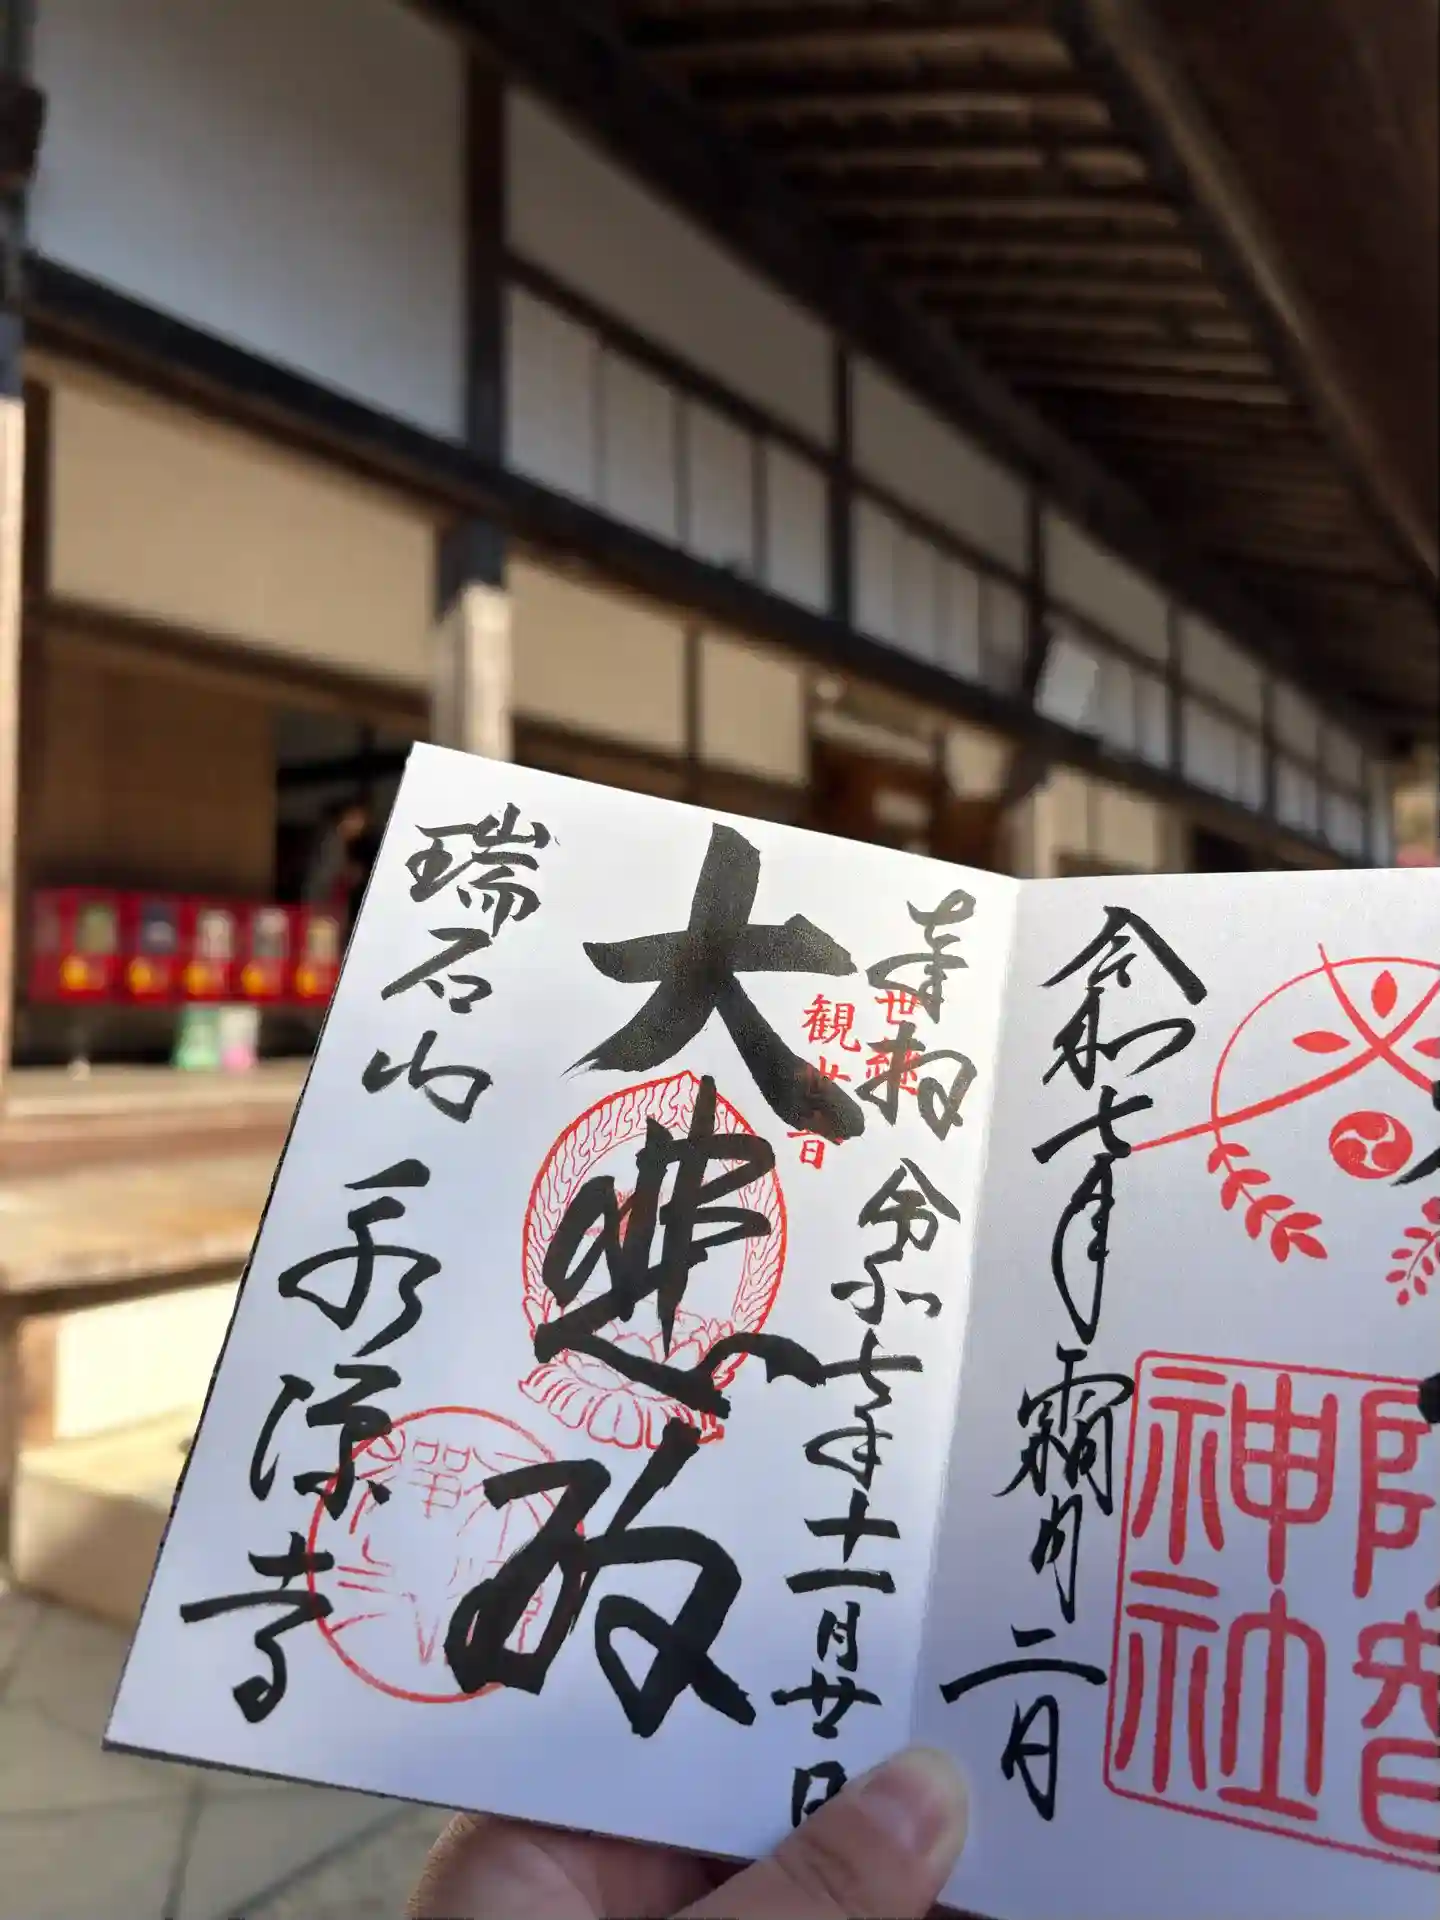 阿智
神社
令和七年霜月二日
奉拝 令和七年十一月廿日
世継
観世音
大悲殿
瑞石山 永源寺